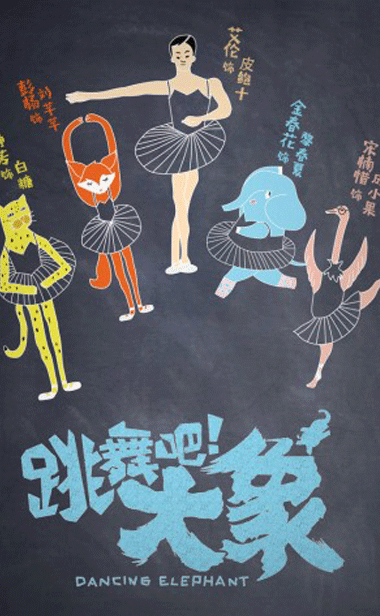 艾伦 饰
皮鲍十
彭杨 饰
刘芊芊
金春花 饰
黎春夏
宋楠惜 饰
小果
饰
白糖
跳舞吧!
大象
DANCING ELEPHANT